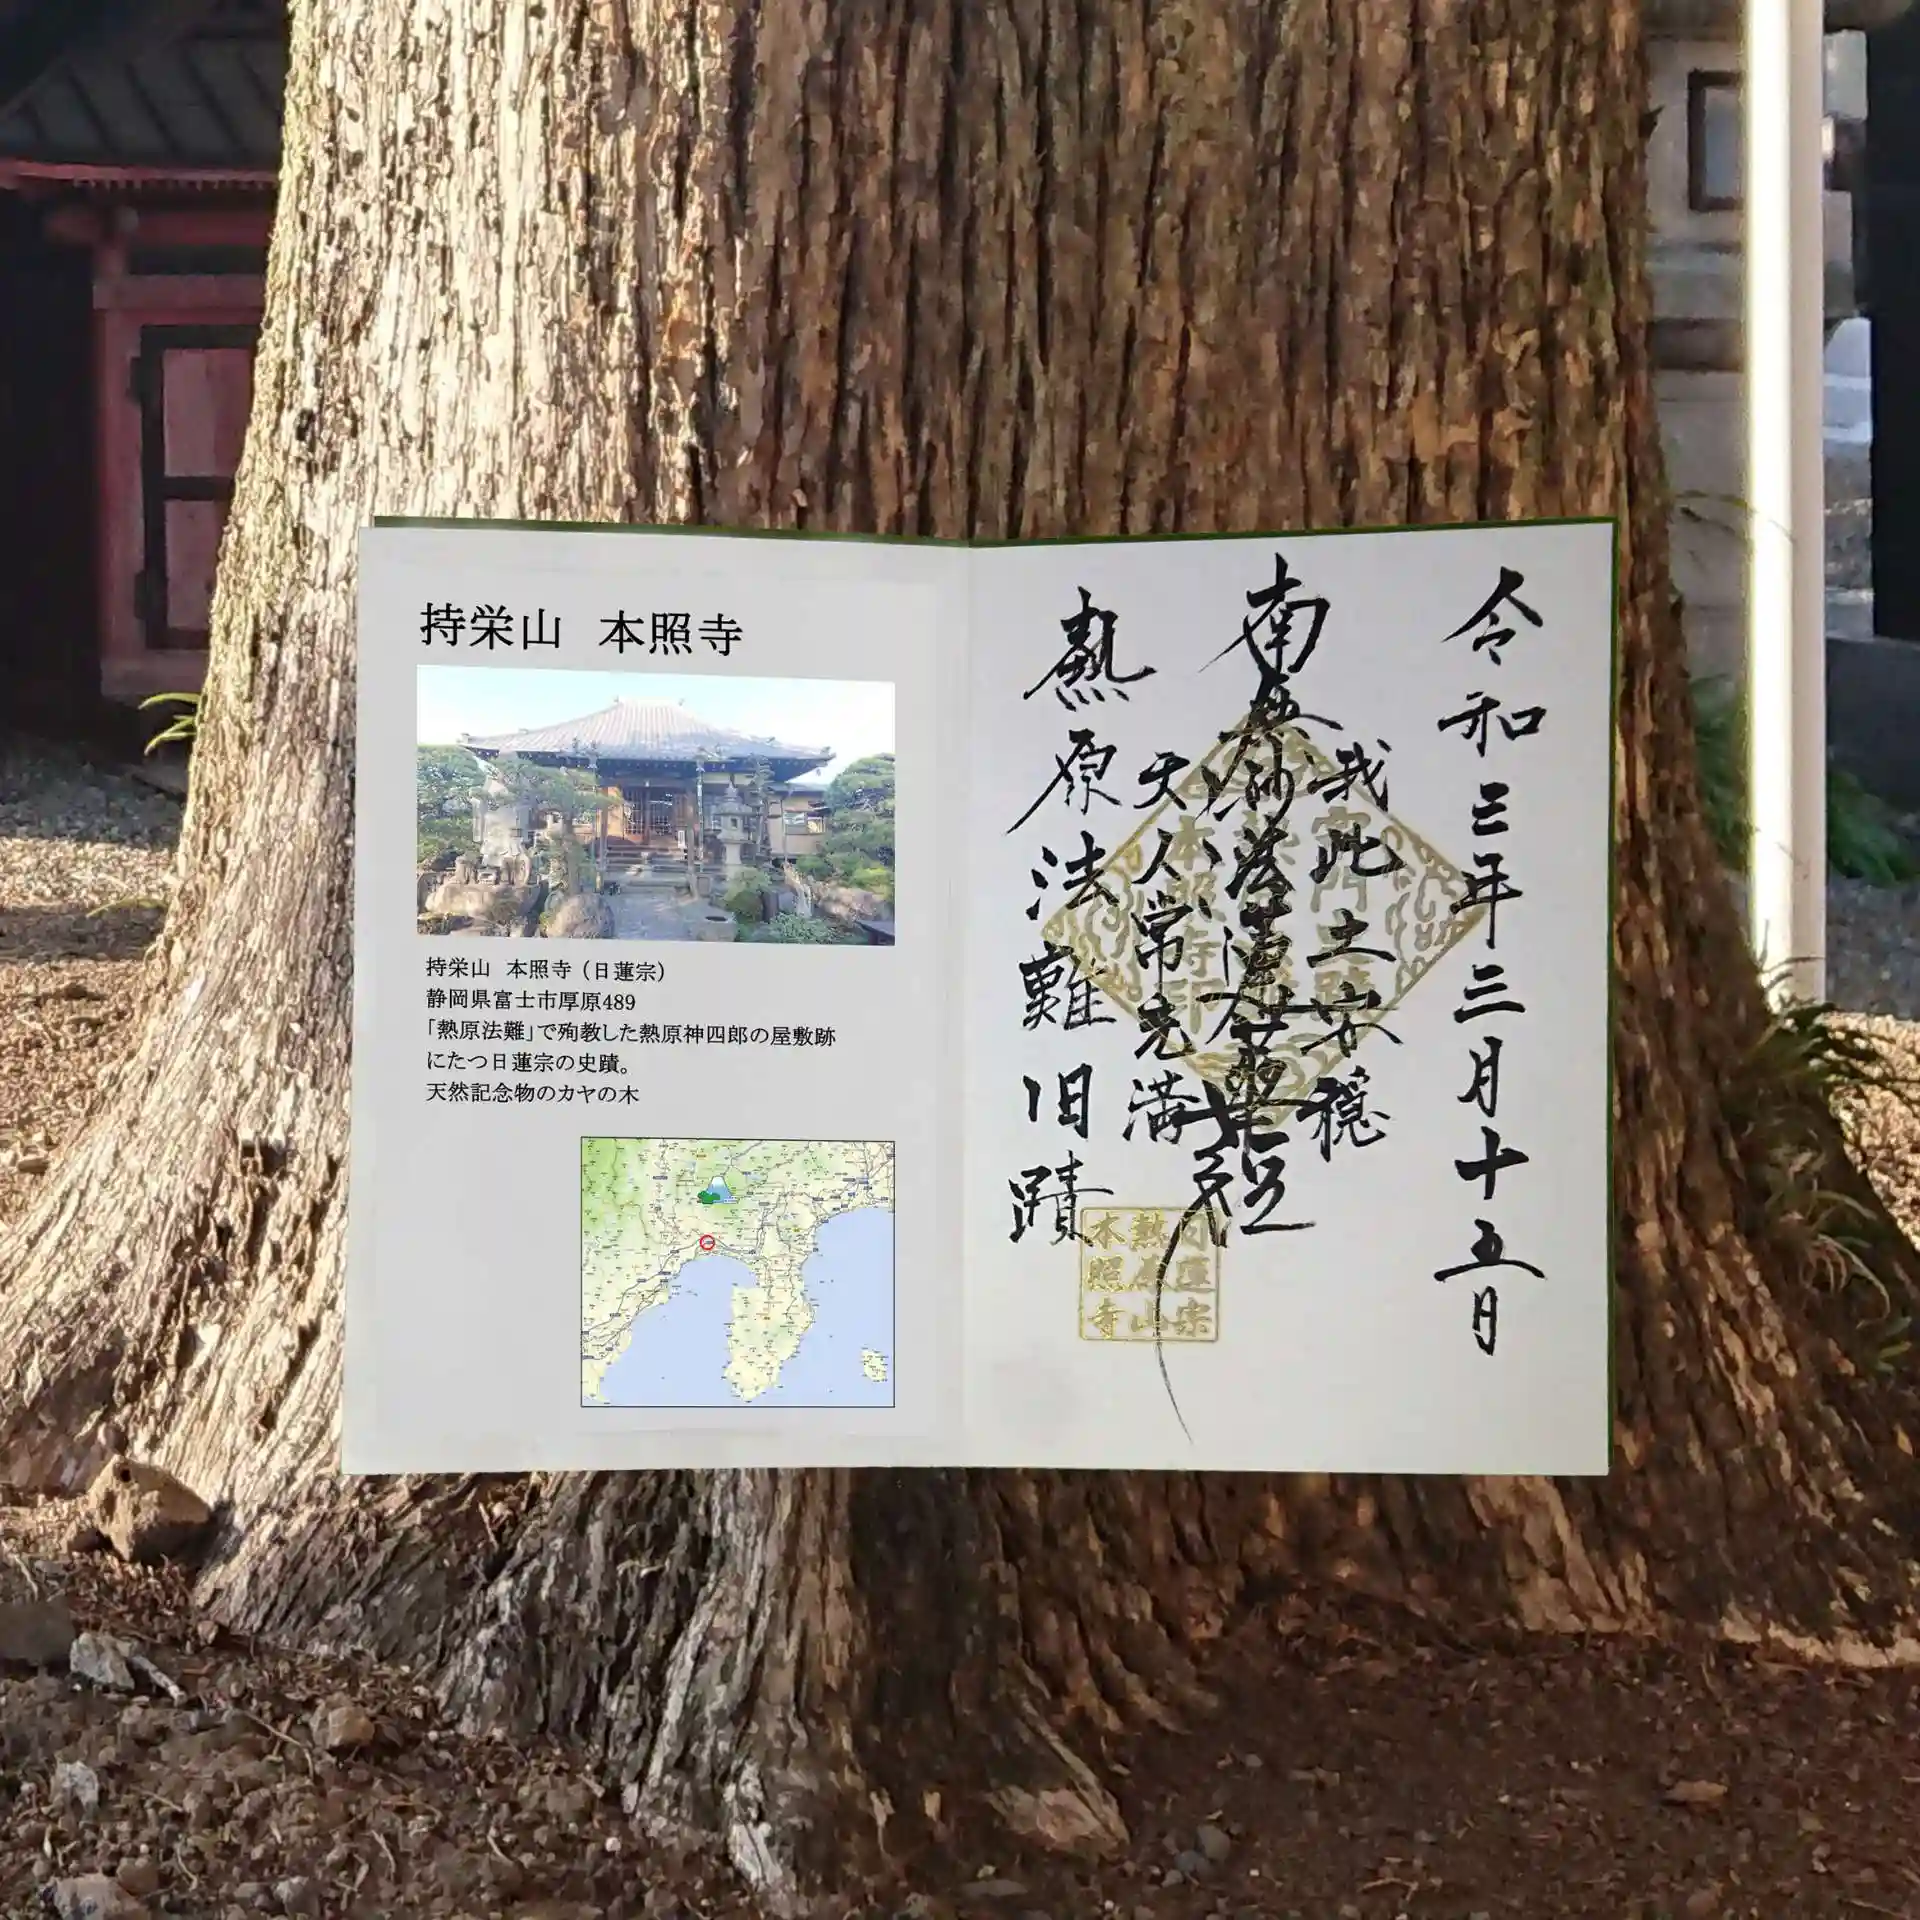 持栄山 本照寺
持栄山 本照寺（日蓮宗）
静岡県富士市厚原489
「熱原法難」で殉教した熱原神四郎の屋敷跡
にたつ日蓮宗の史蹟。
天然記念物のカヤの木
令和三年三月十五日
我此土安穏
南無妙法蓮華経
天人常充満
熱原法難旧蹟
日蓮宗
熱原山
本照寺